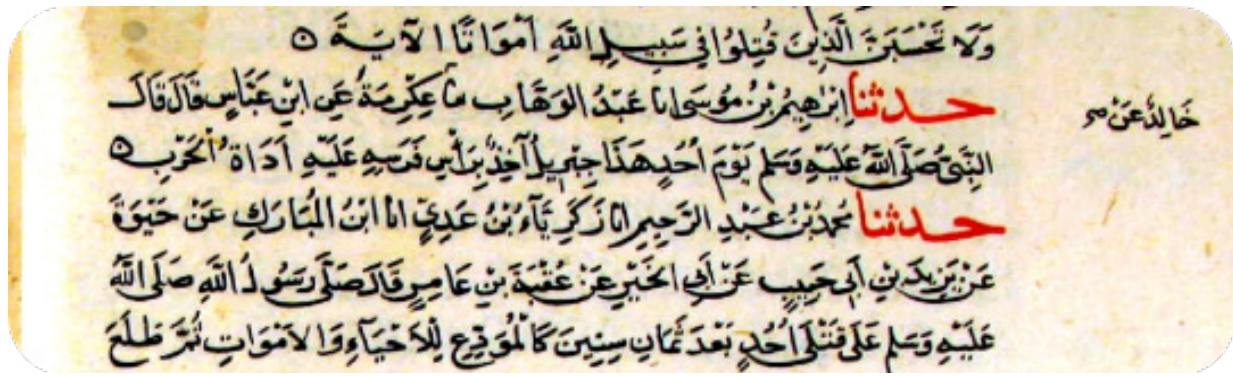 وَلَا تَحْسَبَنَّ الَّذِينَ قُتِلُوا فِي سَبِيلِ اللَّهِ أَمْوَاتًا الْآيَةَ ه
حدثنا إِبْرَاهِيمُ بْنُ مُوسَى انا عَبْدُ الوَهَّابِ نا عِكْرِمَةُ عَنِ ابْنِ عَبَّاسٍ قَالَ قَالَ
خَالِدٌ عَنْ صح
النَّبِيُّ صَلَّى اللَّهُ عَلَيْهِ وَسَلَّم يَوْمَ أُحُدٍ هَذَا جِبْرِيلُ آخِذٌ بِرَأْسِ فَرَسِهِ عَلَيْهِ أَدَاةُ الْحَرْبِ ه
حدثنا مُحَمَّدُ بْنُ عَبْدِ الرَّحِيمِ انا زَكَرِيَّآءُ بْنُ عَدِيٍّ انا ابْنُ المُبَارَكِ عَنْ حَيْوَةَ
عَنْ يَزِيدَ بْنِ أَبِي حَبِيبٍ عَنْ أَبِي الخَيْرِ عَنْ عُقْبَةَ بْنِ عَامِرٍ قَالَ صَلَّى رَسُولُ اللَّهِ صَلَّى اللَّهُ
عَلَيْهِ وَسَلَّم عَلَى قَتْلَى أُحُدٍ بَعْدَ ثَمَانِ سِنِينَ كَالْمُوَدِّعِ لِلْأَحْيَآءِ وَالْأَمْوَاتِ ثُمَّ طَلَعَ